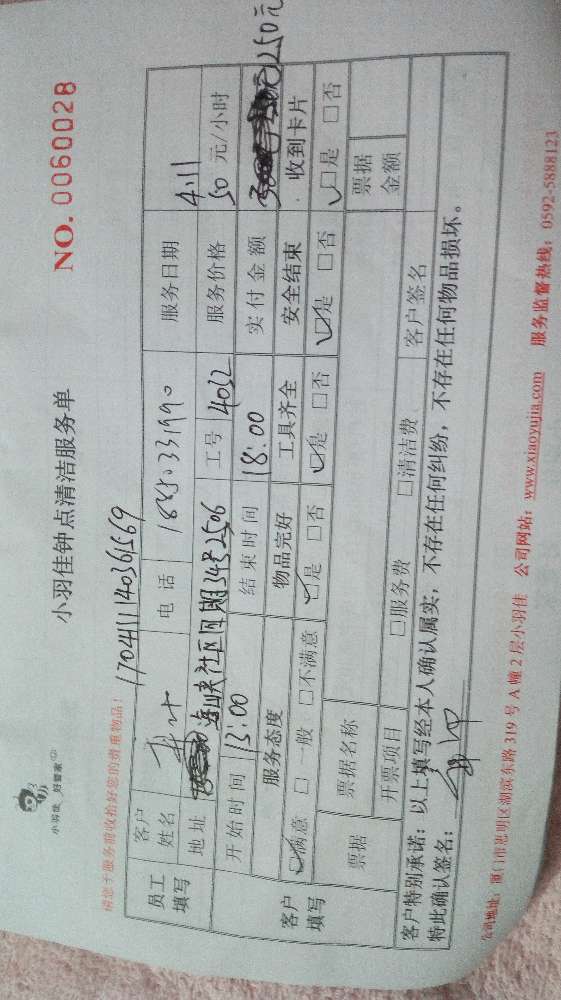 小羽佳 好管家
小羽佳钟点清洁服务单
NO. 0060028
请您于服务前收拾好您的贵重物品！
1704111140361569
员工填写 客户姓名 电话 服务日期 4.11
地址 海峡社区 2506 工号 4032 服务价格 50 元/小时
客户填写 开始时间 13:00 结束时间 18:00 实付金额 250元
服务态度 物品完好 工具齐全 安全结束 收到卡片
☑满意 □一般 □不满意 ☑是 □否 ☑是 □否 ☑是 □否 ☑是 □否
票据 票据名称 票据金额
开票项目 □服务费 □清洁费 客户签名
客户特别承诺：以上填写经本人确认属实，不存在任何纠纷，不存在任何物品损坏。
特此确认签名：
公司地址：厦门市思明区湖滨东路 319 号 A 幢 2 层小羽佳 公司网站：www.xiaoyujia.com 服务监督热线：0592-5888123